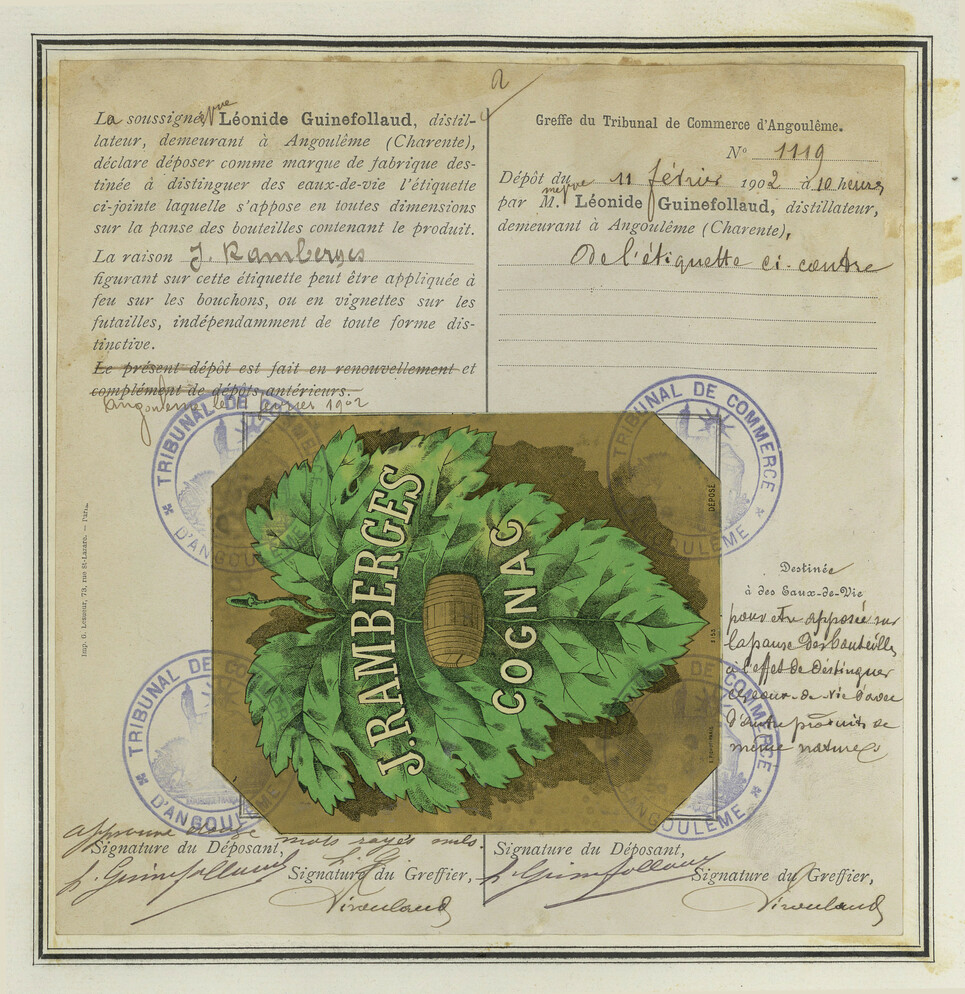 a
La soussignée Vve Léonide Guinefollaud, distil-
lateur, demeurant à Angoulême (Charente),
déclare déposer comme marque de fabrique des-
tinée à distinguer des eaux-de-vie l'étiquette
ci-jointe laquelle s'appose en toutes dimensions
sur la panse des bouteilles contenant le produit.
La raison J. Ramberges
figurant sur cette étiquette peut être appliquée à
feu sur les bouchons, ou en vignettes sur les
futailles, indépendamment de toute forme dis-
tinctive.
Le présent dépôt est fait en renouvellement et
complément de dépôts antérieurs.
Angoulême le février 1902
Greffe du Tribunal de Commerce d'Angoulême.
N° 1119
Dépôt du 11 février 1902 à 10 heures
par M. me Vve Léonide Guinefollaud, distillateur,
demeurant à Angoulême (Charente),
De l'étiquette ci-contre
TRIBUNAL DE COMMERCE
D'ANGOULÊME
TRIBUNAL DE COMMERCE
D'ANGOULÊME
J. RAMBERGES
COGNAC
DÉPOSÉ
Imp. G. Lesueur, 73, rue St-Lazare. — Paris.
Destinée
à des Eaux-de-Vie
pour être apposée sur
la panse des bouteilles
à l'effet de distinguer
ces eaux-de-vie d'avec
d'autres produits de
même nature
TRIBUNAL DE COMMERCE
D'ANGOULÊME
TRIBUNAL DE COMMERCE
D'ANGOULÊME
approuvé douze mots rayés nuls.
Signature du Déposant,
L. G.
L. Guinefollaud
Signature du Greffier,
Signature du Déposant,
L. Guinefollaud
Signature du Greffier,